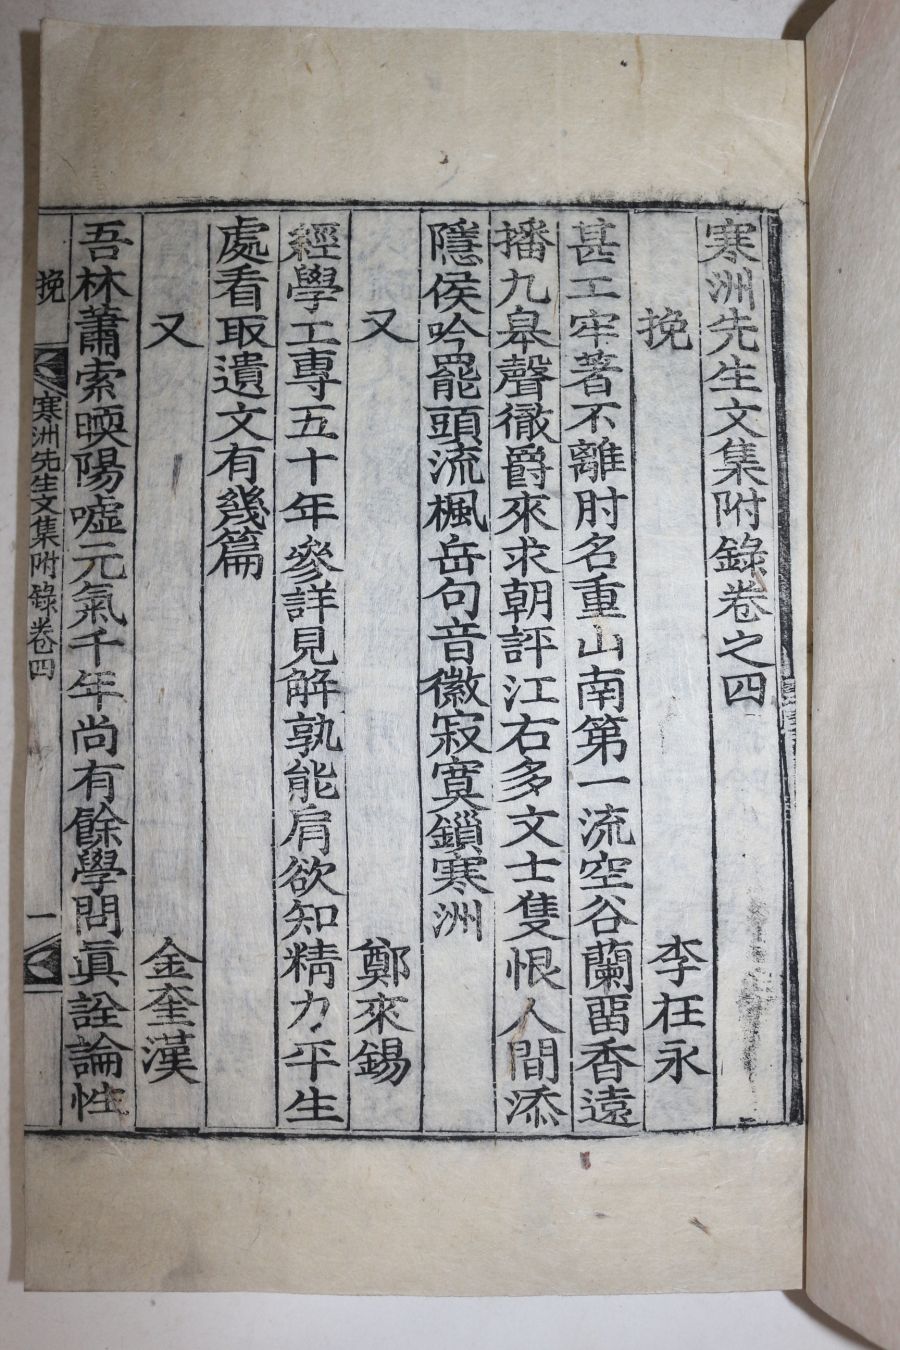 寒洲先生文集附錄卷之四
挽 李在永
甚工牢著不離肘名重山南第一流空谷蘭留香遠
播九皐聲徹爵來求朝評江右多文士隻恨人間添
隱侯吟罷頭流楓岳句音徽寂寞鎖寒洲
又 鄭來錫
經學工專五十年參詳見解孰能肩欲知精力平生
處看取遺文有幾篇
又 金奎漢
吾林蕭索暎陽噓元氣千年尚有餘學問眞詮論性
挽 寒洲先生文集附錄卷四 一